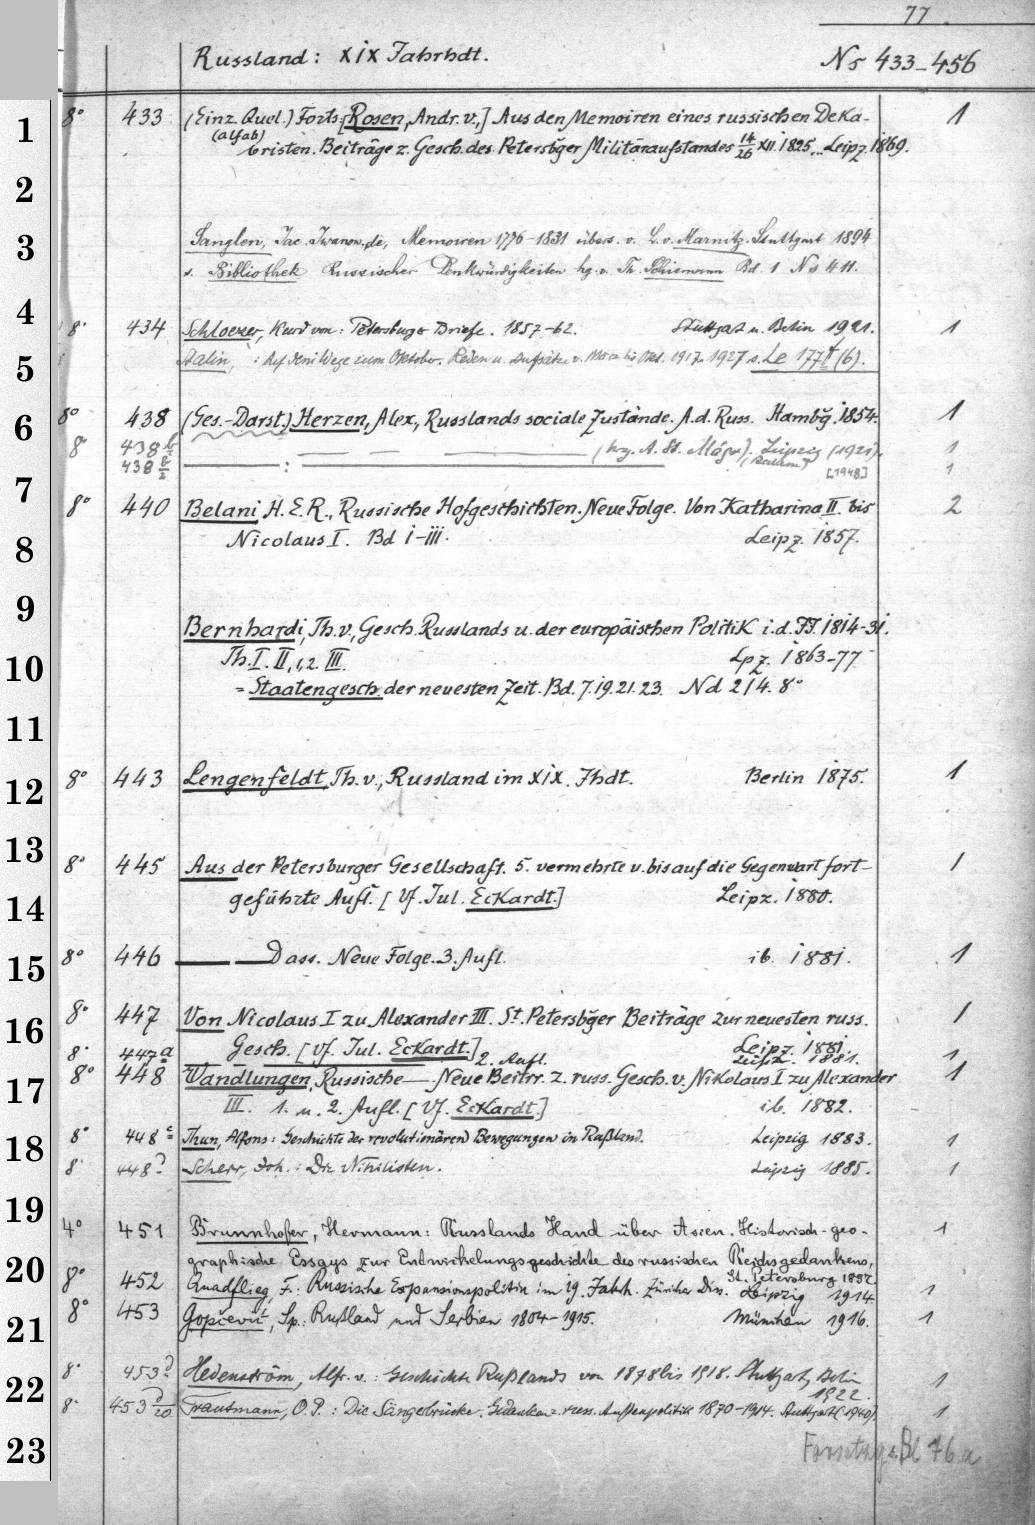 77
Russland: XIX Jahrhdt. No 433-456
1
2
3
4
5
6
7
8
9
10
11
12
13
14
15
16
17
18
19
20
21
22
23
8° 433 (Einz. Quel.) Forts. [Rosen, Andr. v.,] Aus den Memoiren eines russischen Deka- 1
(alfab)
bristen. Beiträge z. Gesch. des Petersbger Militäraufstandes 14/26 XII. 1825... Leipz. 1869.
Sanglen, Jac. Iwanow. de, Memoiren 1776-1831 übers. v. L. v. Marnitz. Stuttgart 1894
s. Bibliothek Russischer Denkwürdigkeiten hg. v. Th. Schiemann Bd. 1 No 411.
8° 434 Schloezer, Kurd von: Petersburger Briefe. 1857-62. Stuttgart u. Berlin 1921. 1
Stalin, : Auf dem Wege zum Oktober. Reden u. Aufsätze v. März bis Okt. 1917. 1927 s. Le 177 (6).
8° 438 (Ges.-Darst.) Herzen, Alex., Russlands sociale Zustände. A. d. Russ. Hambg. 1854. 1
8° 438 — — — (hrg. A. Leipzig (1921). 1
438 — : — (Reclam) [1948] 1
8° 440 Belani, H. E. R., Russische Hofgeschichten. Neue Folge. Von Katharina II. bis 2
Nicolaus I. Bd I-III. Leipz. 1857.
Bernhardi, Th. v., Gesch. Russlands u. der europäischen Politik i. d. JJ. 1814-31.
Th. I. II,1,2. III. Lpz. 1863-77
= Staatengesch. der neuesten Zeit. Bd. 7.19.21.23. Nd 214. 8°
8° 443 Lengenfeldt, Th. v., Russland im XIX. Jhdt. Berlin 1875. 1
8° 445 Aus der Petersburger Gesellschaft. 5. vermehrte u. bis auf die Gegenwart fort- 1
geführte Aufl. [Vf. Jul. Eckardt.] Leipz. 1880.
8° 446 — — Dass. Neue Folge. 3. Aufl. ib. 1881. 1
8° 447 Von Nicolaus I zu Alexander III. St. Petersbger Beiträge zur neuesten russ. 1
Gesch. [Vf. Jul. Eckardt.] Leipz. 1881.
8° 447a 2. Aufl. Leipz. 1881. 1
8° 448 Wandlungen, Russische — Neue Beitrr. z. russ. Gesch. v. Nikolaus I zu Alexander 1
III. 1. u. 2. Aufl. [Vf. Eckardt.] ib. 1882.
8° 448c Thun, Alfons: Geschichte der revolutionären Bewegungen in Rußland. Leipzig 1883. 1
8° 448 Scherr, Joh.: Die Nihilisten. Leipzig 1885. 1
4° 451 Brunnhofer, Hermann: Russlands Hand über Asien. Historisch-geo- 1
graphische Essays zur Entwickelungsgeschichte des russischen Reichsgedankens,
St. Petersburg 1897.
8° 452 Quadflieg, F.: Russische Expansionspolitik im 19. Jahrh. Züricher Diss. Leipzig 1914 1
8° 453 Gopčević, Sp.: Rußland und Serbien 1804-1915. München 1916. 1
8° 453 Hedenström, Alfr. v.: Geschichte Rußlands von 1878 bis 1918. Stuttgart, Berlin 1
1922.
8° 453 Trautmann, O. P.: Die Sängerbrücke. Gedanken z. russ. Außenpolitik 1870-1914. Stuttgart (1940). 1
Forsetzg s. Bl 76a